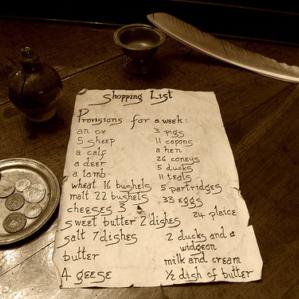 Shopping List
Provisions for a week:
an ox
5 sheep
a calf
a deer
a lamb
wheat 16 bushels
malt 22 bushels
cheeses 3
sweet butter 2 dishes
salt 7 dishes
butter
4 geese
3 pigs
11 capons
a hen
26 coneys
5 ducks
11 teals
5 partridges
33 eggs
24 plaice
2 ducks and a
widgeon
milk and cream
½ dish of butter